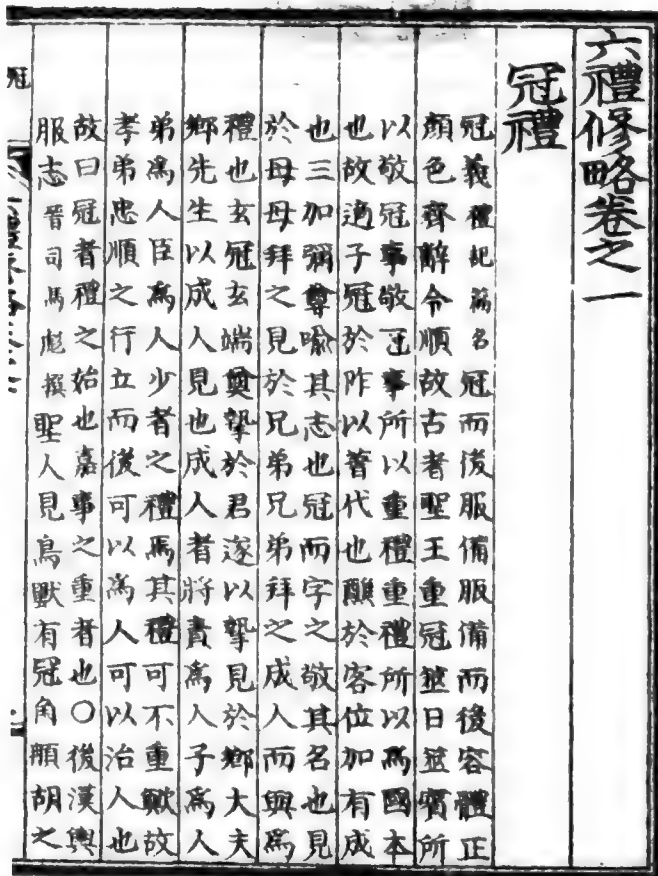 六禮修略卷之一
冠禮
冠義禮記篇名冠而後服備服備而後容體正
顏色齊辭令順故古者聖王重冠筮日筮賓所
以敬冠事敬冠事所以重禮重禮所以爲國本
也故適子冠於阼以着代也醮於客位加有成
也三加彌尊喩其志也冠而字之敬其名也見
於母母拜之見於兄弟兄弟拜之成人而與爲
禮也玄冠玄端奠摯於君遂以摯見於鄕大夫
鄕先生以成人見也成人者將責爲人子爲人
弟爲人臣爲人少者之禮焉其禮可不重歟故
孝弟忠順之行立而後可以爲人可以治人也
故曰冠者禮之始也嘉事之重者也○後漢輿
服志晉司馬彪撰聖人見鳥獸有冠角䫇胡之
冠